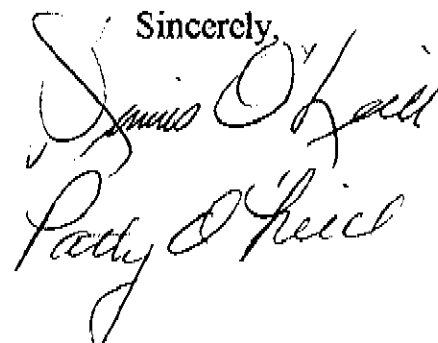 Sincerely,
Dennis O'Neill
Patty O'Neill